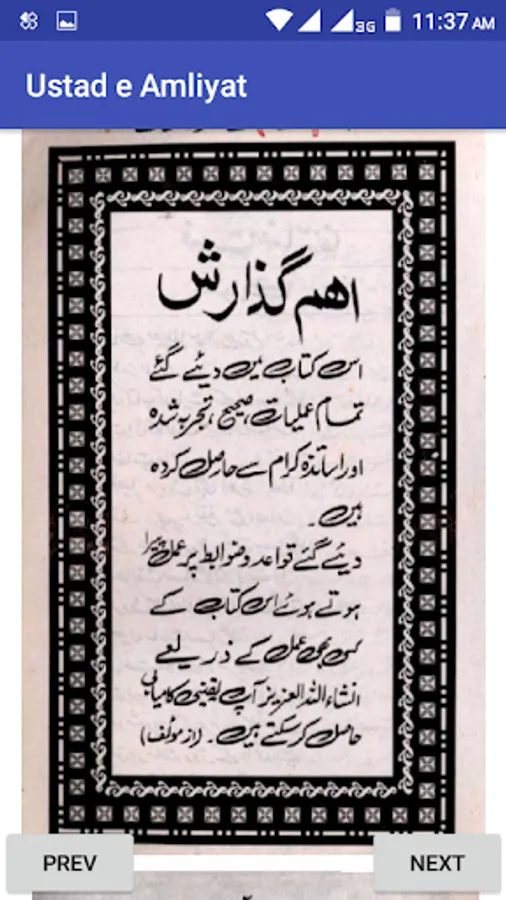 3G 11:37 AM
Ustad e Amliyat
اہم گذارش
اس کتاب میں دیئے گئے
تمام عملیات، صحیح، تجربہ شدہ
اور اساتذہ کرام سے حاصل کردہ
ہیں۔
دیئے گئے قواعد و ضوابط پر عمل پیرا
ہوتے ہوئے اس کتاب کے
کسی بھی عمل کے ذریعے
انشاء اللہ العزیز آپ یقینی کامیابی
حاصل کر سکتے ہیں۔ (از مولف)
PREV
NEXT